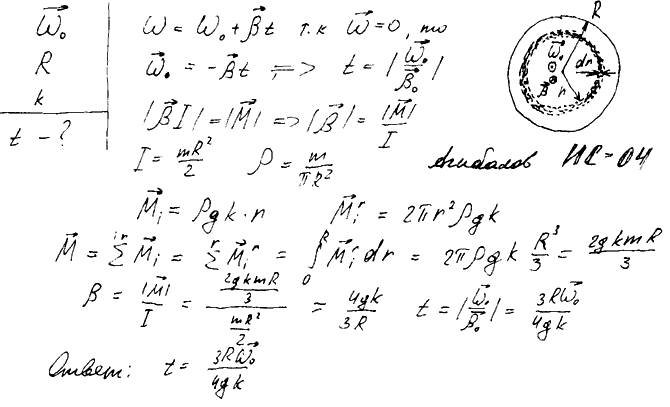 ω⃗₀
R
k
t - ?
ω = ω₀ + β⃗t т.к ω⃗ = 0, то
ω⃗₀ = -β⃗t => t = |ω⃗₀/β⃗₀|
|β⃗I| = |M⃗| => |β⃗| = |M⃗|/I
I = mR²/2 ρ = m/πR²
R
ω⃗₀
dr
β⃗
r
Агибалов ИС-04
M⃗ᵢ = ρgk·r M⃗ᵢʳ = 2πr²ρgk
M⃗ = Σ M⃗ᵢ = Σ M⃗ᵢʳ = ∫₀ᴿ M⃗ᵢʳ dr = 2πρgk R³/3 = 2gkmR/3
β = |M⃗|/I = (2gkmR/3)/(mR²/2) = 4gk/3R t = |ω⃗₀/β⃗₀| = 3Rω⃗₀/4gk
Ответ: t = 3Rω⃗₀/4gk